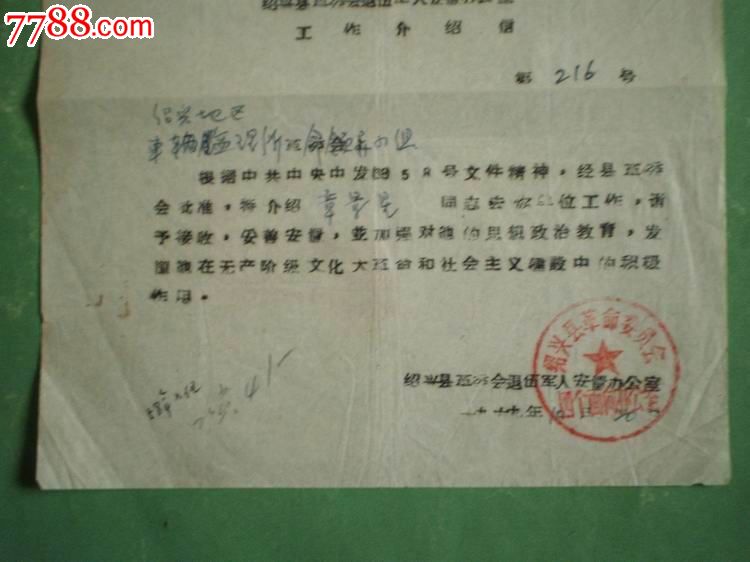 7788.com
绍兴县革委会退伍军人安置办公室
工作介绍信
第 216 号
绍兴地区
车辆监理所革命领导小组
根据中共中央中发 58号文件精神,经县革委
会批准,特介绍 章 同志去你单位工作,请
予接收,妥善安置,並加强对他的思想政治教育,发
挥他在无产阶级文化大革命和社会主义建设中的积极
作用。
绍兴县革命委员会
绍兴县革委会退伍军人安置办公室
一九 年 月